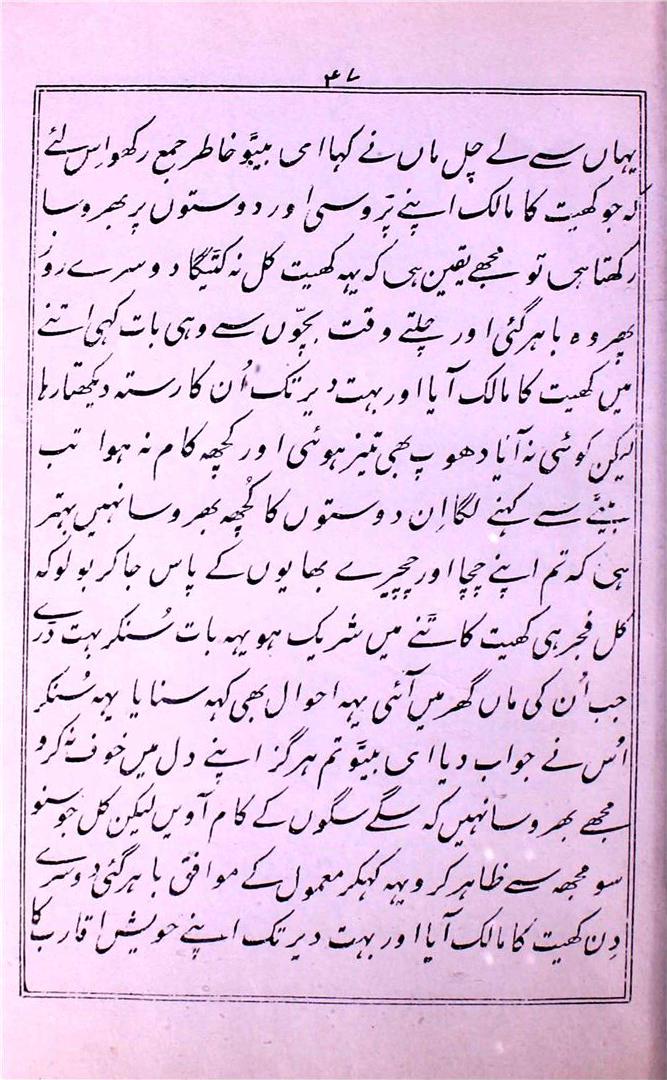 ۴۷
یہاں سے لے چل ماں نے کہا ای بیٹو خاطر جمع رکھو اِس لئے
کہ جو کھیت کا مالک اپنے پڑوسی اور دوستوں پر بھروسا
رکھتا ہی تو مجھے یقین ہی کہ یہہ کھیت کل نہ کٹیگا دوسرے روز
پھر وہ باہر گئی اور چلتے وقت بچّوں سے وہی بات کہی اتنے
میں کھیت کا مالک آیا اور بہت دیر تک اُن کا رستہ دیکھتا رہا
لیکن کوئی نہ آیا دھوپ بھی تیز ہوئی اور کچھ کام نہ ہوا تب
بیٹے سے کہنے لگا اِن دوستوں کا کُچھ بھروسا نہیں بہتر
ہی کہ تم اپنے چچا اور چچیرے بھایوں کے پاس جا کر بولو کہ
کل فجر ہی کھیت کاٹنے میں شریک ہو یہہ بات سُنکر بہت ڈرے
جب اُن کی ماں گھر میں آئی یہہ احوال بھی کہہ سنایا یہہ سُنکر
اُس نے جواب دیا ای بیٹو تم ہرگز اپنے دل میں خوف نہ کرو
مجھے بھروسا نہیں کہ سگے سگوں کے کام آویں لیکن کل جو سنو
سو مجھہ سے ظاہر کرو یہہ کہکر معمول کے موافق باہر گئی دوسرے
دِن کھیت کا مالک آیا اور بہت دیر تک اپنے خویش اقارب کا